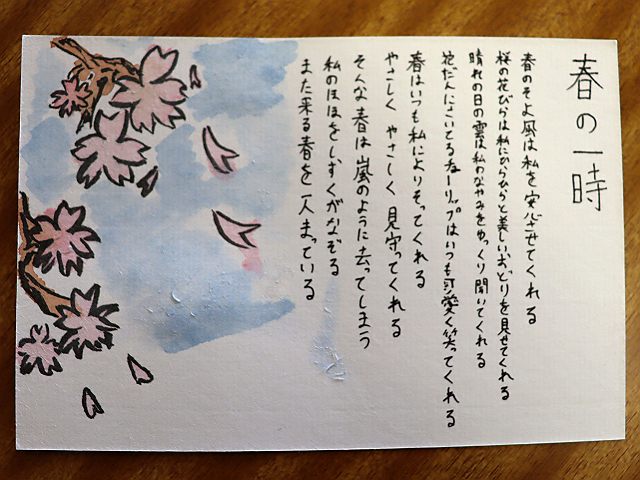 春の一時
春のそよ風は私を安心させてくれる
桜の花びらは私にひらひらと美しいおどりを見せてくれる
晴れの日の雲は私のなやみをゆっくり聞いてくれる
花だんにさいてるチューリップはいつも可愛く笑ってくれる
春はいつも私によりそってくれる
やさしく やさしく 見守ってくれる
そんな春は嵐のように去ってしまう
私のほほをしずくがなぞる
また来る春を一人まっている